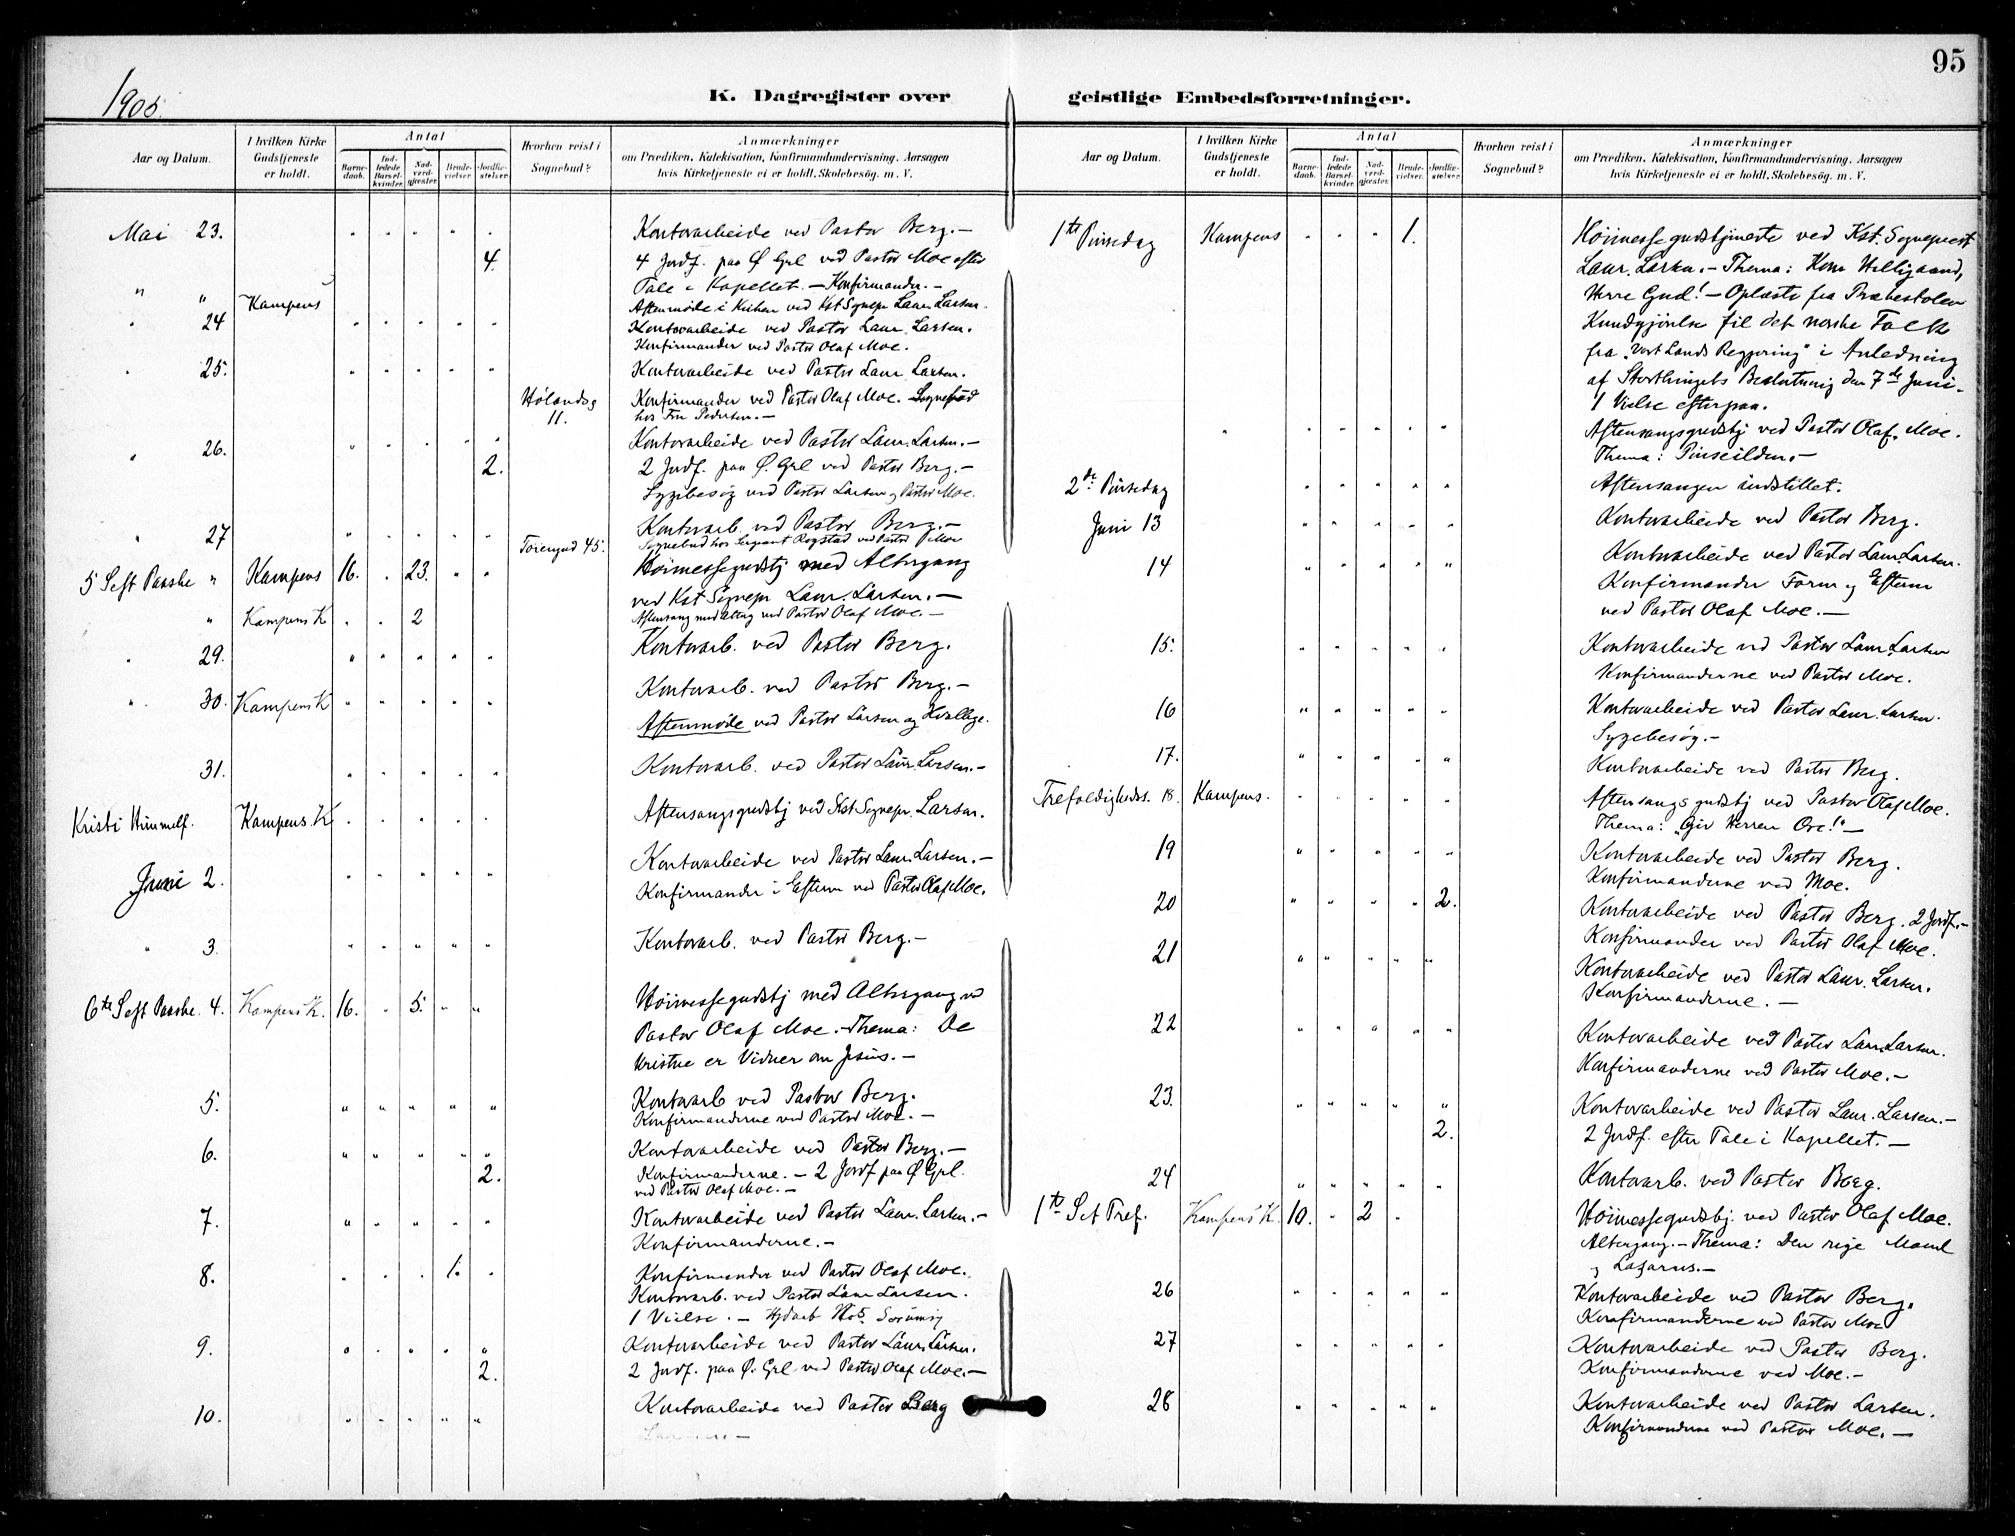 95
1905.
K. Dagregister over geistlige Embedsforretninger.
Aar og Datum.
I hvilken Kirke Gudstjeneste er holdt.
Antal
Barnedaab.
Indledede Barselkvinder.
Nadverdgjæster.
Brudevielser.
Jordfæstelser.
Hvorhen reist i Sognebud?
Anmærkninger
om Prædiken, Katekisation, Konfirmandundervisning, Aarsagen
hvis Kirketjeneste ei er holdt, Skolebesøg. m. V.
Mai 23. " " " " " Kontorarbeide ved Pastor Berg. –
4. 4 Jordf. paa Ø Grl ved Pastor Moe efter
Tale i Kapellet. – Konfirmander. –
" " Kampens Aftenmøde i Kirken ved Kst Sognepr Laur. Larsen.
" 24 " " " " " Kontorarbeide ved Pastor Laur. Larsen.
Konfirmander ved Pastor Olaf Moe.
" 25. " " " " " Kontorarbeide ved Pastor Laur. Larsen.
Hølandsg Konfirmander ved Pastor Olaf Moe. Sognebud
11. hos Fru Pedersen. –
" 26. " " " " " Kontorarbeide ved Pastor Laur. Larsen. –
2. 2 Jordf. paa Ø. Grl ved Pastor Berg. –
Sygebesøg ved Pastor Larsen og Pastor Moe.
" 27 " " " " " Kontorarb. ved Pastor Berg. –
45. Sognebud hos Sergeant Rogstad ved Pastor Moe
5 S eft Paaske " Kampens 16. " 23. " " Høimessegudstj med Altergang
ved Kst Sognepr Laur. Larsen. –
" Kampens K " " 2 Aftensang med Altg ved Pastor Olaf Moe. –
" 29. " " " " " Kontorarb. ved Pastor Berg.
" 30. Kampens K " " " " " Kontorarb. ved Pastor Berg. –
Aftenmøde ved Pastor Larsen og
31. " " " " " Kontorarb. ved Pastor Laur. Larsen. –
Kristi Himmelf. Kampens K " " " " " Aftensangsgudstj ved Kst Sognepr. Larsen.
Juni 2. " " " " " Kontorarbeide ved Pastor Laur. Larsen. –
Konfirmander i Efterm ved Pastor Olaf Moe.
" 3. " " " " " Kontorarb. ved Pastor Berg. –
6te S eft Paaske. 4. Kampens K. 16. " 5. " " Høimessegudstj med Altergang ved
Pastor Olaf Moe. – Thema: De
Kristne er Vidner om Jesus. –
5. " " " " " Kontorarb ved Pastor Berg.
Konfirmanderne ved Pastor Moe. –
6. " " " " " Kontorarbeide ved Pastor Berg. –
2. Konfirmanderne. – 2 Jordf paa Ø Grl.
ved Pastor Olaf Moe. –
7. " " " " " Kontorarbeide ved Pastor Laur. Larsen. –
Konfirmanderne. –
8. " " " 1. " Konfirmander ved Pastor Olaf Moe.
Kontorarb. ved Pastor Laur Larsen.
1 Vielse. –
9. " " " " " Kontorarbeide ved Pastor Laur. Larsen.
2. 2 Jordf. paa Ø. Grl ved Pastor Olaf Moe. –
10. " " " " " Kontorarbeide ved Pastor Berg
Aar og Datum.
I hvilken Kirke Gudstjeneste er holdt.
Antal
Barnedaab.
Indledede Barselkvinder.
Nadverdgjæster.
Brudevielser.
Jordfæstelser.
Hvorhen reist i Sognebud?
Anmærkninger
om Prædiken, Katekisation, Konfirmandundervisning, Aarsagen
hvis Kirketjeneste ei er holdt, Skolebesøg. m. V.
1ste Pinsedag Kampens " " " 1. Høimessegudstjeneste ved Kst. Sogneprest
Laur. Larsen. – Thema: Kom Helligaand,
Herre Gud! – Oplæste fra Prækestolen
Kundgjørelse til det norske Folk
fra "Vort Lands Regjering" i Anledning
af Storthingets Beslutning den 7de Juni. –
1 Vielse efterpaa.
" " " " " " Aftensangsgudstj ved Pastor Olaf Moe.
Thema: Pinseilden. –
2den Pinsedag " " " " " Aftensangen indstillet.
Juni 13 " " " " " Kontorarbeide ved Pastor Berg.
14 " " " " " Kontorarbeide ved Pastor Laur. Larsen.
Konfirmander Form og Efterm
ved Pastor Olaf Moe. –
15. " " " " " Kontorarbeide ved Pastor Laur. Larsen
Konfirmanderne ved Pastor Moe.
16 " " " " " Kontorarbeide ved Pastor Laur. Larsen.
Sygebesøg. –
17. " " " " " Kontorarbeide ved Pastor Berg.
Trefoldighedss. 18. Kampens. " " " " " Aftensangsgudstj ved Pastor Olaf Moe.
Thema: "Giv Herren Ære!" –
19 " " " " " Kontorarbeide ved Pastor Berg.
Konfirmanderne ved Moe.
20 " " " " 2. Kontorarbeide ved Pastor Berg. 2 Jordf. –
Konfirmander ved Pastor Olaf Moe.
21 " " " " " Kontorarbeide ved Pastor Laur. Larsen.
Konfirmanderne. –
22 " " " " " Kontorarbeide ved Pastor Laur. Larsen.
Konfirmanderne ved Pastor Moe. –
23. " " " " " Kontorarbeide ved Pastor Laur. Larsen. –
2. 2 Jordf. efter Tale i Kapellet. –
24 " " " " " Kontorarb. ved Pastor Berg.
1ste S ef Tref. Kampens K. 10. " 2 " Høimessegudstj. ved Pastor Olaf Moe.
Altergang. – Thema: Den rige Mand
og Lazarus. –
26 " " " " " Kontorarbeide ved Pastor Berg.
Konfirmanderne ved Pastor Moe
27 " " " " " Kontorarbeide ved Pastor Berg.
Konfirmanderne ved Moe. –
28 " " " " " Kontorarbeide ved Pastor Larsen.
Konfirmanderne ved Pastor Moe. –